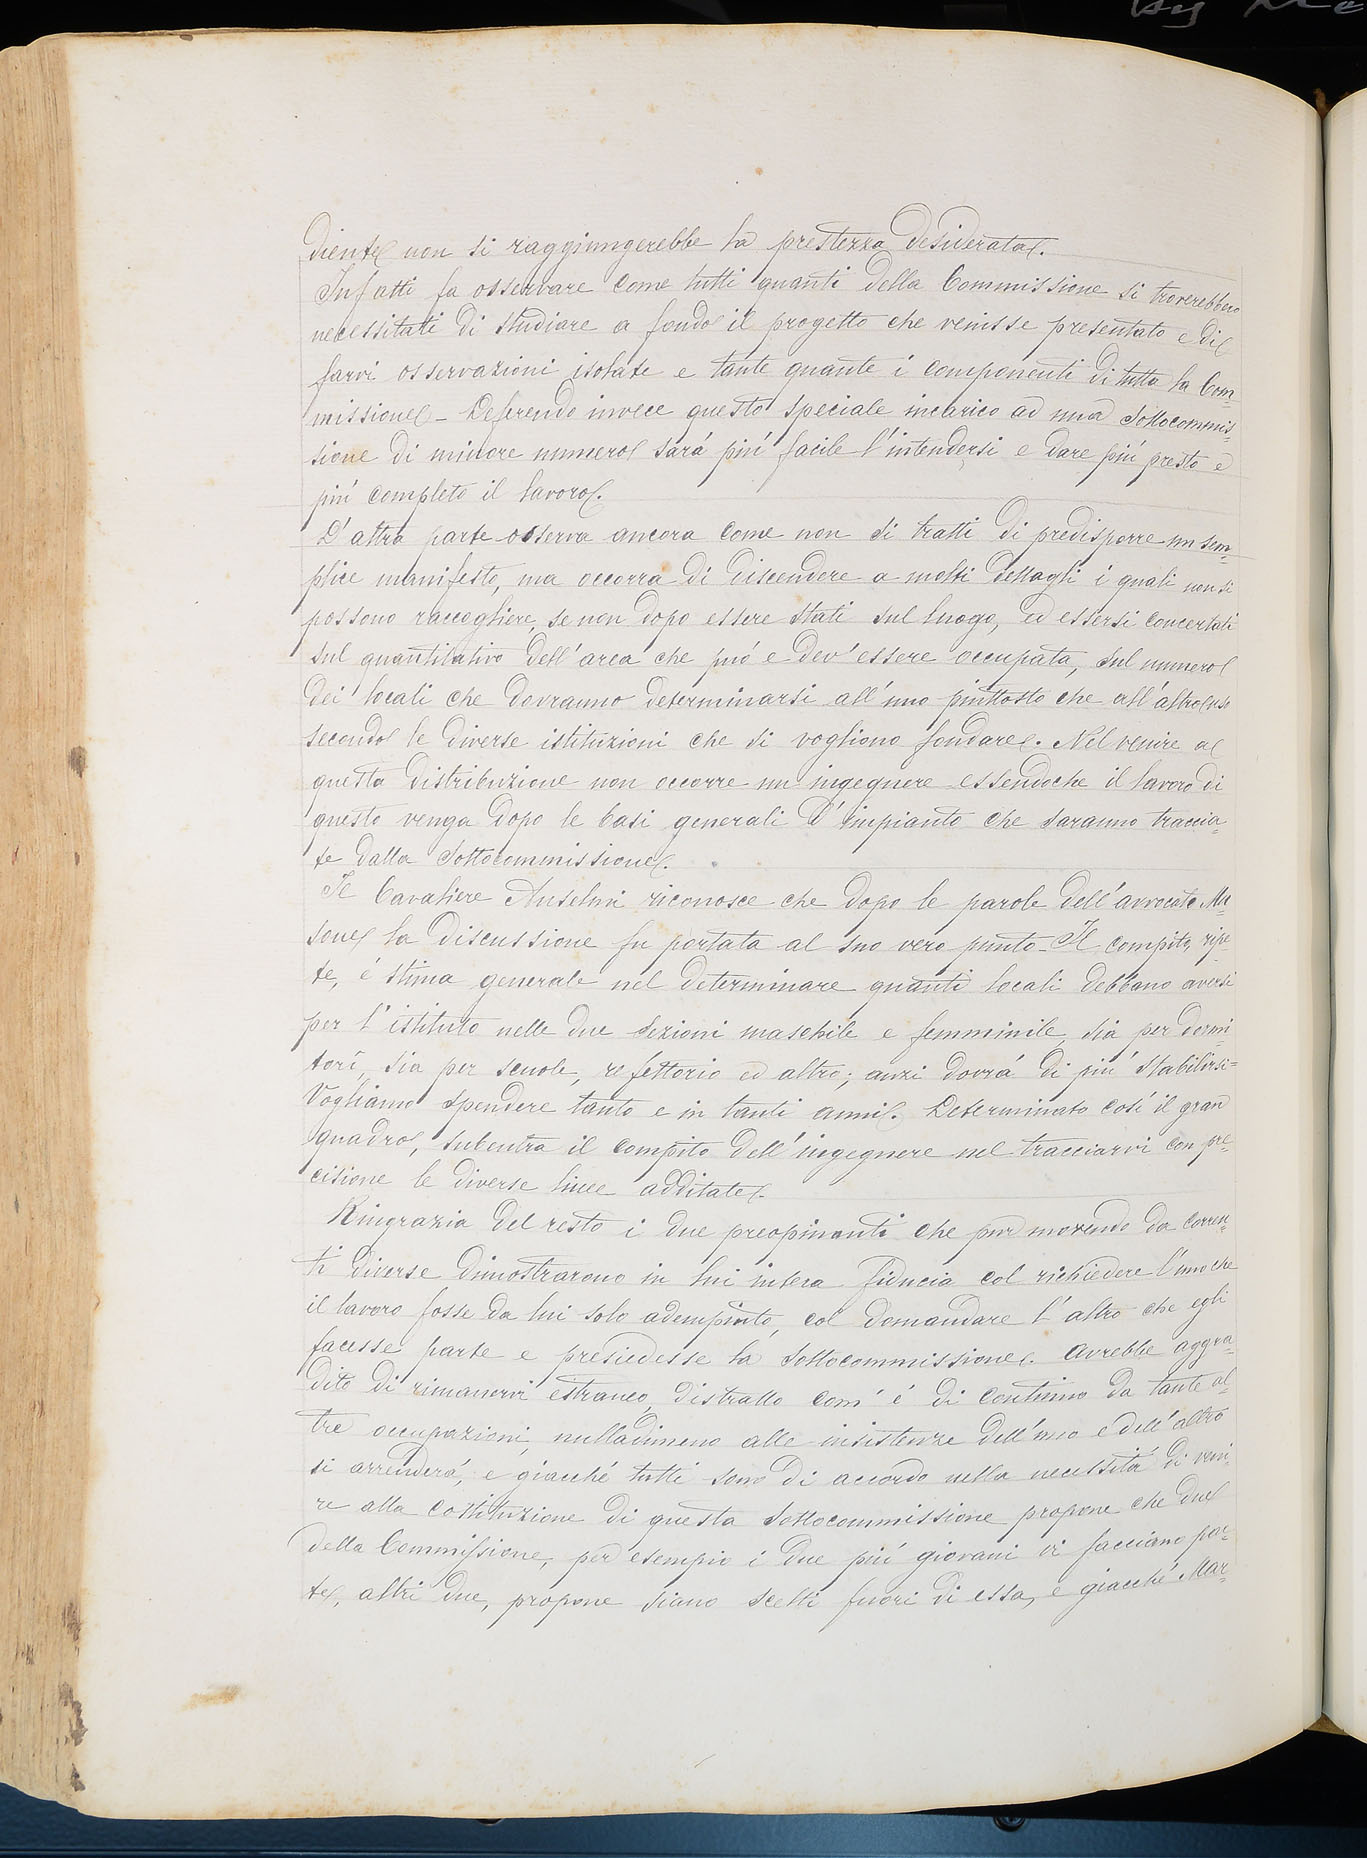 diente non si raggiungerebbe la prestezza desiderata.
Infatti fa osservare come tutti quanti della Commissione si troverebbero
necessitati di studiare a fondo il progetto che venisse presentato e di
farvi osservazioni isolate e tante quante i componenti di tutta la Com=
missione – Deferendo invece questo speciale incarico ad una Sottocommis=
sione di minore numero sará piú facile l'intendersi e dare piú presto e
piú completo il lavoro.
D'altra parte osserva ancora come non si tratti di predisporre un sem=
plice manifesto, ma occorra di discendere a molti dettagli i quali non si
possono raccogliere, se non dopo essere stati sul luogo, ed essersi concertati
sul quantitativo dell'area che puó e dev'essere occupata, sul numero
dei locali che dovranno determinarsi all'uno piuttosto che all'altro uso
secondo le diverse istituzioni che si vogliono fondare. Nel venire a
questa distribuzione non occorre un ingegnere essendoche il lavoro di
questo venga dopo le basi generali d'impianto che saranno traccia=
te dalla Sottocommissione.
Il Cavaliere Anselmi riconosce che dopo le parole dell'avvocato Ma=
sone la discussione fu portata al suo vero punto – Il compito, ripe=
te, é stima generale nel determinare quanti locali debbano aversi
per l'istituto nelle due sezioni maschile e femminile, sia per dormi=
tori, sia per scuole, refettorio ed altro; anzi dovrá di piú stabilirsi=
Vogliamo spendere tanto e in tanti anni. Determinato cosí il gran
quadro, subentra il compito dell'ingegnere nel tracciarvi con pre=
cisione le diverse linee additate.
Ringrazia del resto i due preopinanti che pur movendo da corren=
ti diverse dimostrarono in lui intera fiducia col richiedere l'uno che
il lavoro fosse da lui solo adempiuto, col domandare l'altro che egli
facesse parte e presiedesse la Sottocommissione. Avrebbe aggra=
dito di rimanervi estraneo, distratto com'é di continuo da tante al=
tre occupazioni, nulladimeno alle insistenze dell'uno e dell'altro
si arrenderá, e giacché tutti sono di accordo nella necessitá di veni=
re alla costituzione di questa Sottocommissione propone che due
della Commissione, per esempio i due piú giovani vi facciano par=
te, altri due, propone siano scelti fuori di essa, e giacché Mar=